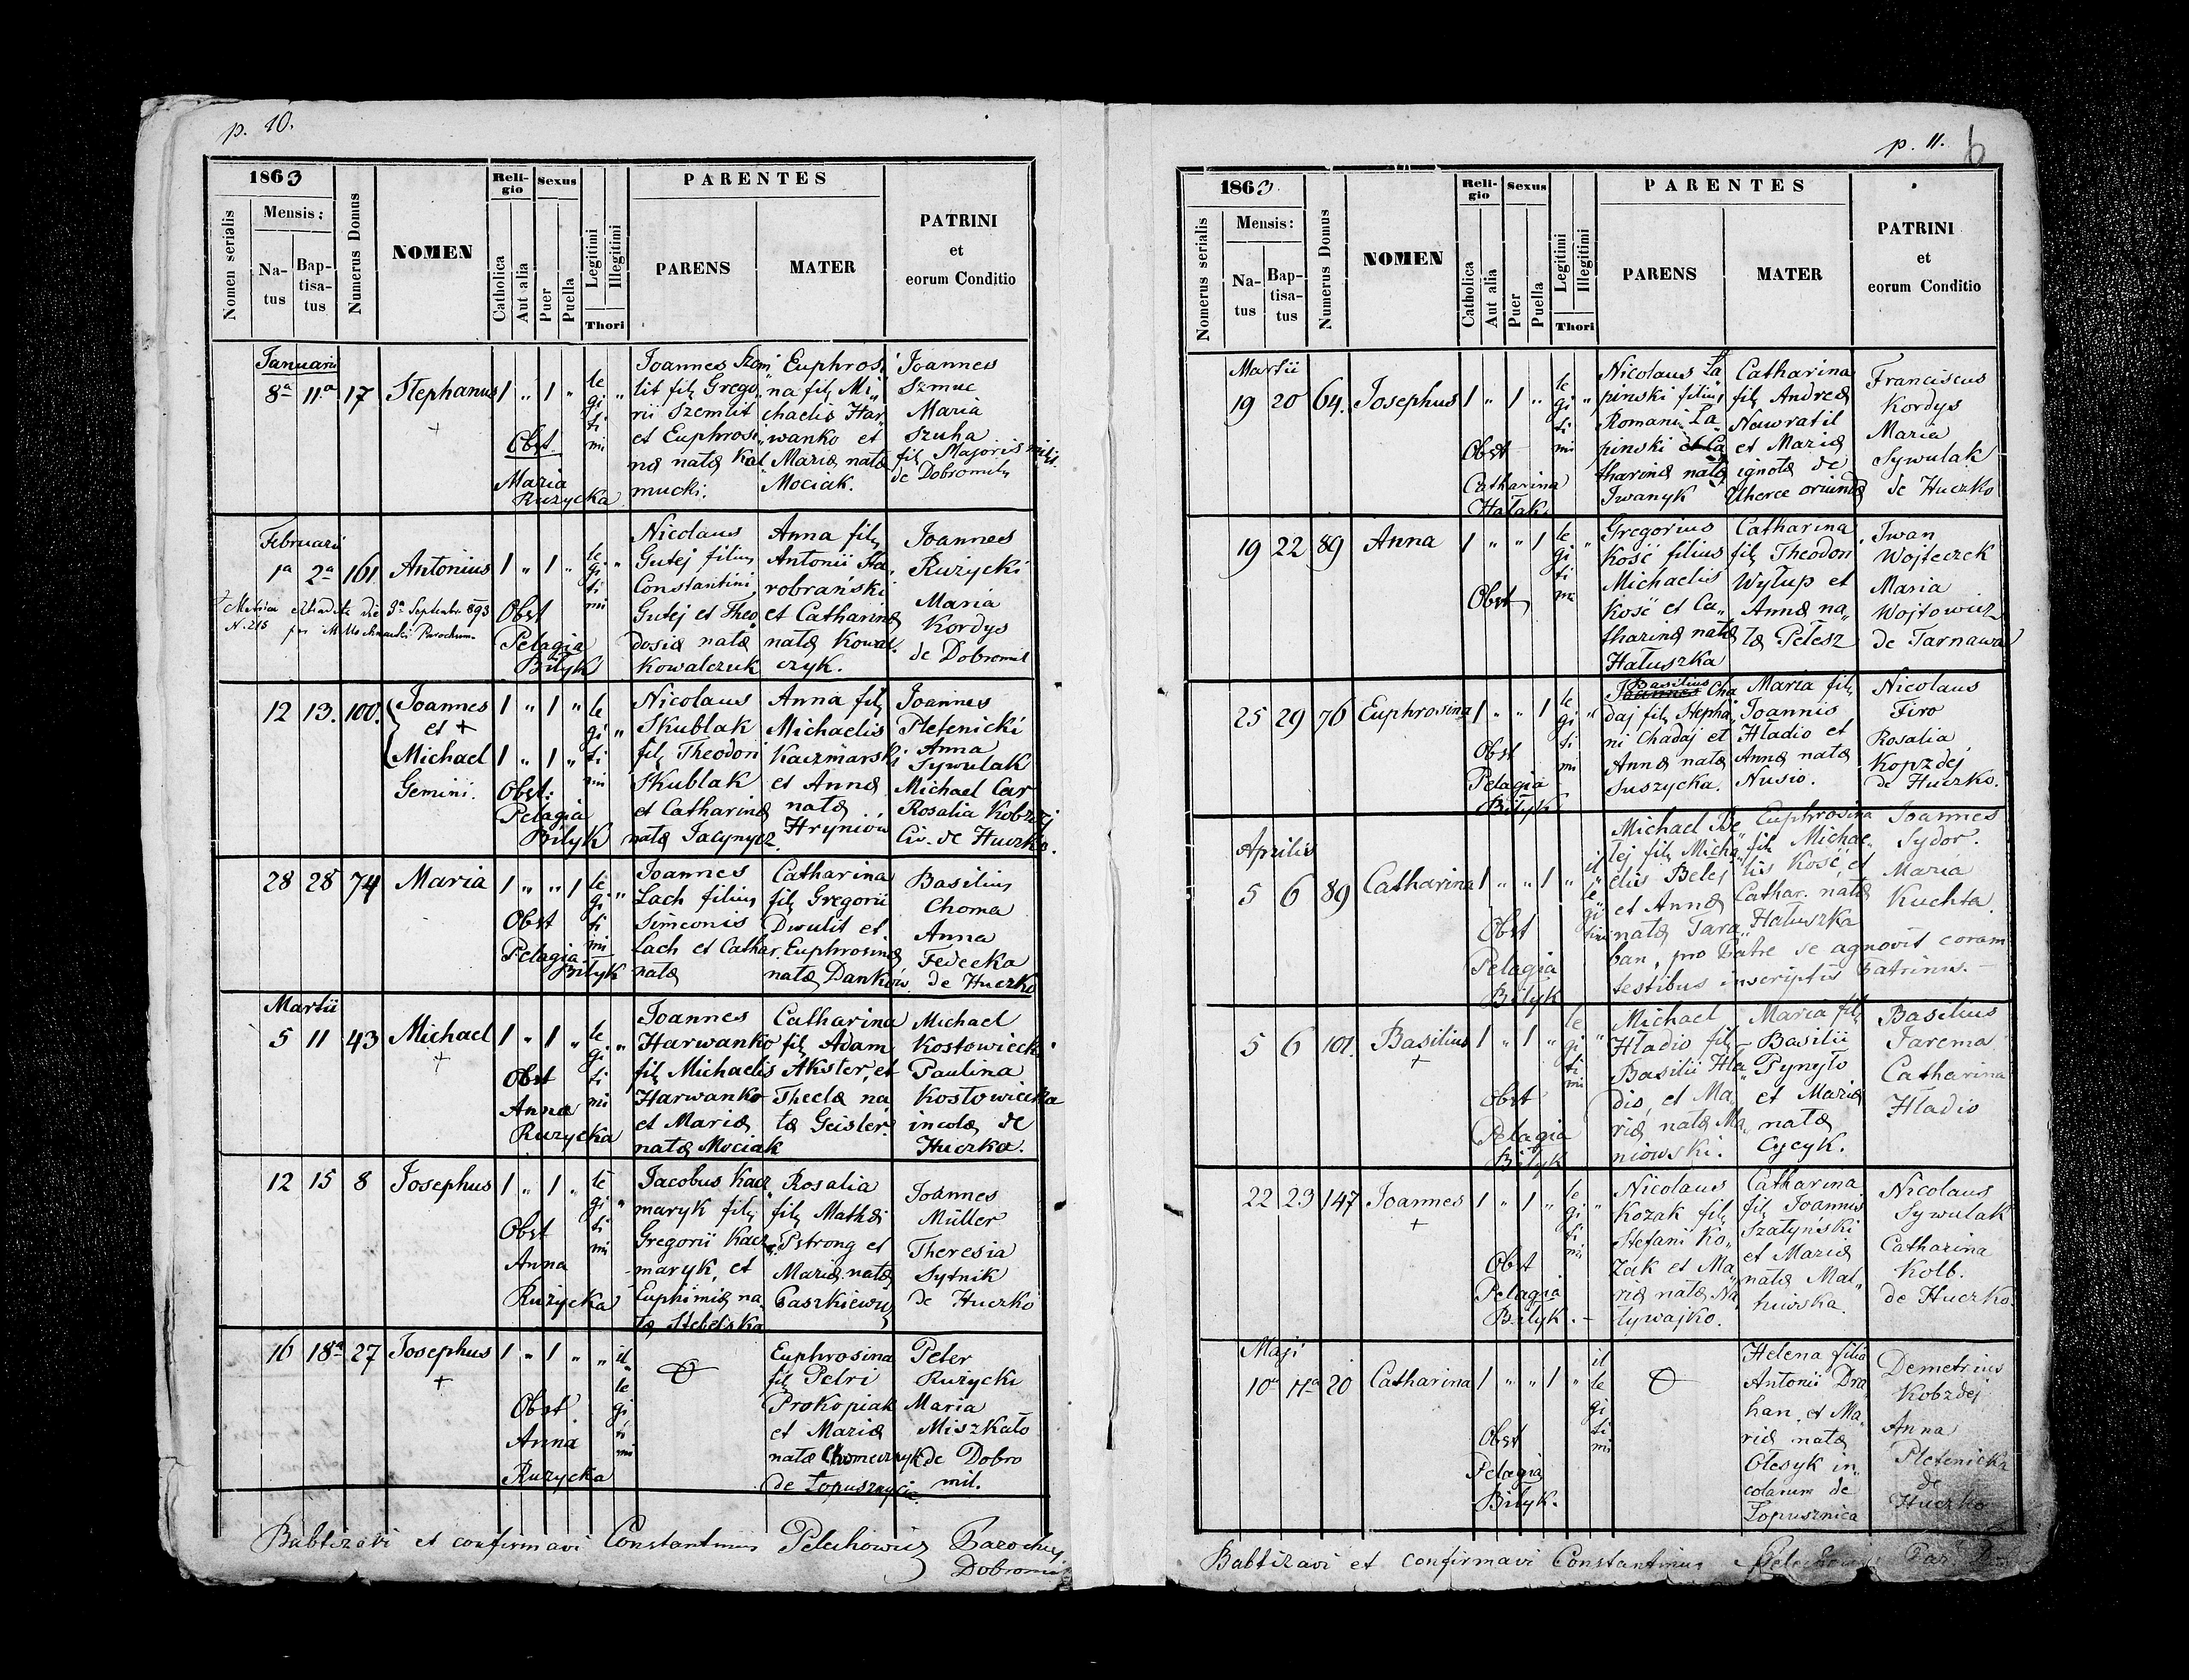 p. 10.
1863
Nomen serialis
Mensis:
Na-
tus
Bap-
tisa-
tus
Numerus Domus
NOMEN
Reli-
gio
Catholica
Aut alia
Sexus
Puer
Puella
Legitimi
Illegitimi
Thori
PARENTES
PARENS
MATER
PATRINI
et
eorum Conditio
Januarii
8a 11a 17 Stephanus 1 " 1 "
le
gi "
ti
mi
Obst.
Maria
Ruzycka
Joannes Szem
lit fil. Grego
rii Szemlit
et Euphrosi
næ natæ Kal
mucki.
Euphrosi
na fil. Mi
chaelis Har
wanko et
Mariæ natæ
Mociak.
Joannes
Szmuc
Maria
Szuha
fil. Majoris milit.
de Dobromil
Februarii
1a 2a 161 Antonius 1 " 1 "
le
gi "
ti
mi
Metrica extradita die 3a Septembr 893
N. 215 per Parochum
Obst
Pelagia
Bilyk
Nicolaus
Gutej filius
Constantini
Gutej et Theo
dosiæ natæ
Kowalczuk
Anna fil.
Antonii Ha
robrański
et Catharinæ
natæ Kowal
czyk.
Joannes
Ruzycki
Maria
Kordys
de Dobromil
12 13. 100. Joannes 1 " 1 "
et +
Michael 1 " 1 "
Gemini.
le
gi "
ti
mi
Obst:
Pelagia
Bilyk
Nicolaus
Skublak
fil. Theodori
Skublak
et Catharinæ
natæ Jacynycz
Anna fil.
Michaelis
Kaczmarski
et Annæ
natæ
Hryniów
Joannes
Pletenicki
Anna
Sywulak
Michael Car
Rosalia Kobzdej
Civ. de Huczko.
28 28 74 Maria 1 " " 1
+
le
gi "
ti
mi
Obst
Pelagia
Bilyk
Joannes
Lach filius
Simeonis
Lach et Cathar.
natæ
Catharina
fil. Gregorii
Dwulit et
Euphrosinæ
natæ Danków
Basilius
Choma
Anna
Fedecka
de Huczko
Martii
5 11 43 Michael 1 " 1 "
+
le
gi "
ti
mi
Obst
Anna
Ruzycka
Joannes
Harwanko
fil. Michaelis
Harwanko
et Mariæ
natæ Mociak
Catharina
fil. Adam
Akster, et
Theclæ na
tæ Geisler.
Michael
Kostowiecki
Paulina
Kostowiecka
incolæ de
Huczko.
12 15 8 Josephus 1 " 1 "
le
gi "
ti
mi
Obst
Anna
Ruzycka
Jacobus Kacz
maryk fil.
Gregorii Kacz
maryk, et
Euphimiæ na
tæ Stebelska
Rosalia
fil. Mathæi
Pstrong et
Mariæ natæ
Paszkiewicz
Joannes
Müller
Theresia
Sytnik
de Huczko
16 18a 27 Josephus 1 " 1 " "
+
il
le
gi
ti
mi
Obst
Anna
Ruzycka
Euphrosina
fil. Petri
Prokopiak
et Mariæ
natæ Chomeczyk
de Łopusznica
Peter
Ruzycki
Maria
Miszkało
de Dobro
mil.
Babtizavi et confirmavi Constantinus Pelechowicz Parochus
Dobromil
p. 11. 6
1863
Numerus serialis
Mensis:
Na-
tus
Bap-
tisa-
tus
Numerus Domus
NOMEN
Reli-
gio
Catholica
Aut alia
Sexus
Puer
Puella
Legitimi
Illegitimi
Thori
PARENTES
PARENS
MATER
PATRINI
et
eorum Conditio
Martii
19 20 64. Josephus 1 " 1 "
le
gi "
ti
mi
Obst
Catharina
Hałak
Nicolaus Ła
pinski filius
Romani Ła
pinski et Ca
tharinæ natæ
Iwanyk
Catharina
fil. Andreæ
Nawratil
et Mariæ
ignotæ de
Uherce oriundæ
Franciscus
Kordys
Maria
Sywulak
de Huczko
19 22 89 Anna 1 " " 1
le
gi "
ti
mi
Obst
Gregorius
Kość filius
Michaelis
Kość et Ca
tharinæ natæ
Hałuszka
Catharina
fil. Theodori
Wyłup et
Annæ na
tæ Pełesz
Iwan
Wojteczek
Maria
Wojtowicz
de Tarnawa
25 29 76 Euphrosina 1 " " 1
le
gi "
ti
mi
Obst
Pelagia
Bilyk
Basilius
Joannes Cha
daj fil. Stepha
ni Chadaj et
Annæ natæ
Suszycka.
Maria fil.
Joannis
Hładio et
Annæ natæ
Husio.
Nicolaus
Firo
Rosalia
Kopzdej
de Huczko.
Aprilis
5 6 89 Catharina 1 " " 1 "
il
le
gi
timi
Obst
Pelagia
Bilyk
Michael Be
lej fil. Micha
elis Belej
et Annæ
natæ Tara
ban, pro Patre se agnovit coram
testibus inscriptis Patrinis.
Euphrosina
fil. Michae
lis Kość, et
Cathar. natæ
Hałuszka
Joannes
Sydor.
Maria
Kuchta
5 6 101. Basilius 1 " 1 "
+
le
gi "
ti
mi
Obst
Pelagia
Bilyk
Michael
Hładio fil.
Basilii Hła
dio, et Ma
riæ natæ Ma
niowski.
Maria fil.
Basilii
Pynyło
et Mariæ
natæ
Cycyk.
Basilius
Jarema
Catharina
Hładio
22 23 147 Joannes 1 " 1 "
+
le
gi "
ti
mi
Obst
Pelagia
Bilyk.
Nicolaus
Kozak fil.
Stefani Ko
zak et Ma
riæ natæ Na
lywajko.
Catharina
fil. Joannis
Szatynski
et Mariæ
natæ Mal
hiwska.
Nicolaus
Sywulak
Catharina
Kolb.
de Huczko.
Maji
10a 11a 20 Catharina 1 " " 1 "
il
le
gi
ti
mi
Obst
Pelagia
Bilyk.
Helena filia
Antonii Dra
han, et Ma
riæ natæ
Olesyk in
colarum de
Łopusznica
Demetrius
Kobzdej
Anna
Pletenicka
de
Huczko
Babtizavi et confirmavi Constantinus Pelechowicz Par